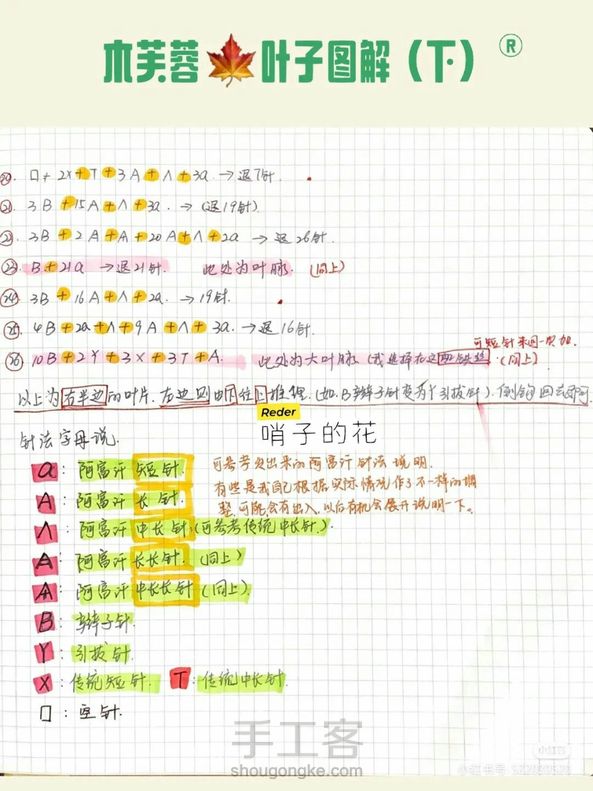 木芙蓉🍁叶子图解（下）®
⑳. 口+2X+T+3A+Λ+3a. →退7针.
㉑. 3B+15A+Λ+3a. →(退19针)
㉒. 3B+2A+A+20A+Λ+2a →退26针.
㉓. B+21a →退21针. 此处为叶脉. (同上)
㉔. 3B+16A+Λ+2a. →19针.
㉕. 4B+2a+Λ+9A+Λ+3a. →退16针.
可短针来回一次加.
㉖. 10B+2Y+3X+3T+A. 此处为大叶脉 (我选择在这 (同上)
以上为右半边的叶片. 左边则由下往上推便. (如.B辫子针变为个引拔针). 倒钩回去即可.
Reder
哨子的花
针法字母说.
a: 阿富汗短针. 可参考发出来的阿富汗针法说明.
有些是我自己根据实际情况作了不一样的调
A: 阿富汗长针. 整,可能会有出入,以后有机会展开说明一下。
Λ: 阿富汗中长针.(可参考传统中长针.)
A: 阿富汗长长针. (同上)
A: 阿富汗中长长针 (同上).
B: 辫子针.
Y: 引拔针.
X: 传统短针. T: 传统中长针.
口: 空针.
手工客
shougongke.com
小红书
小红书号